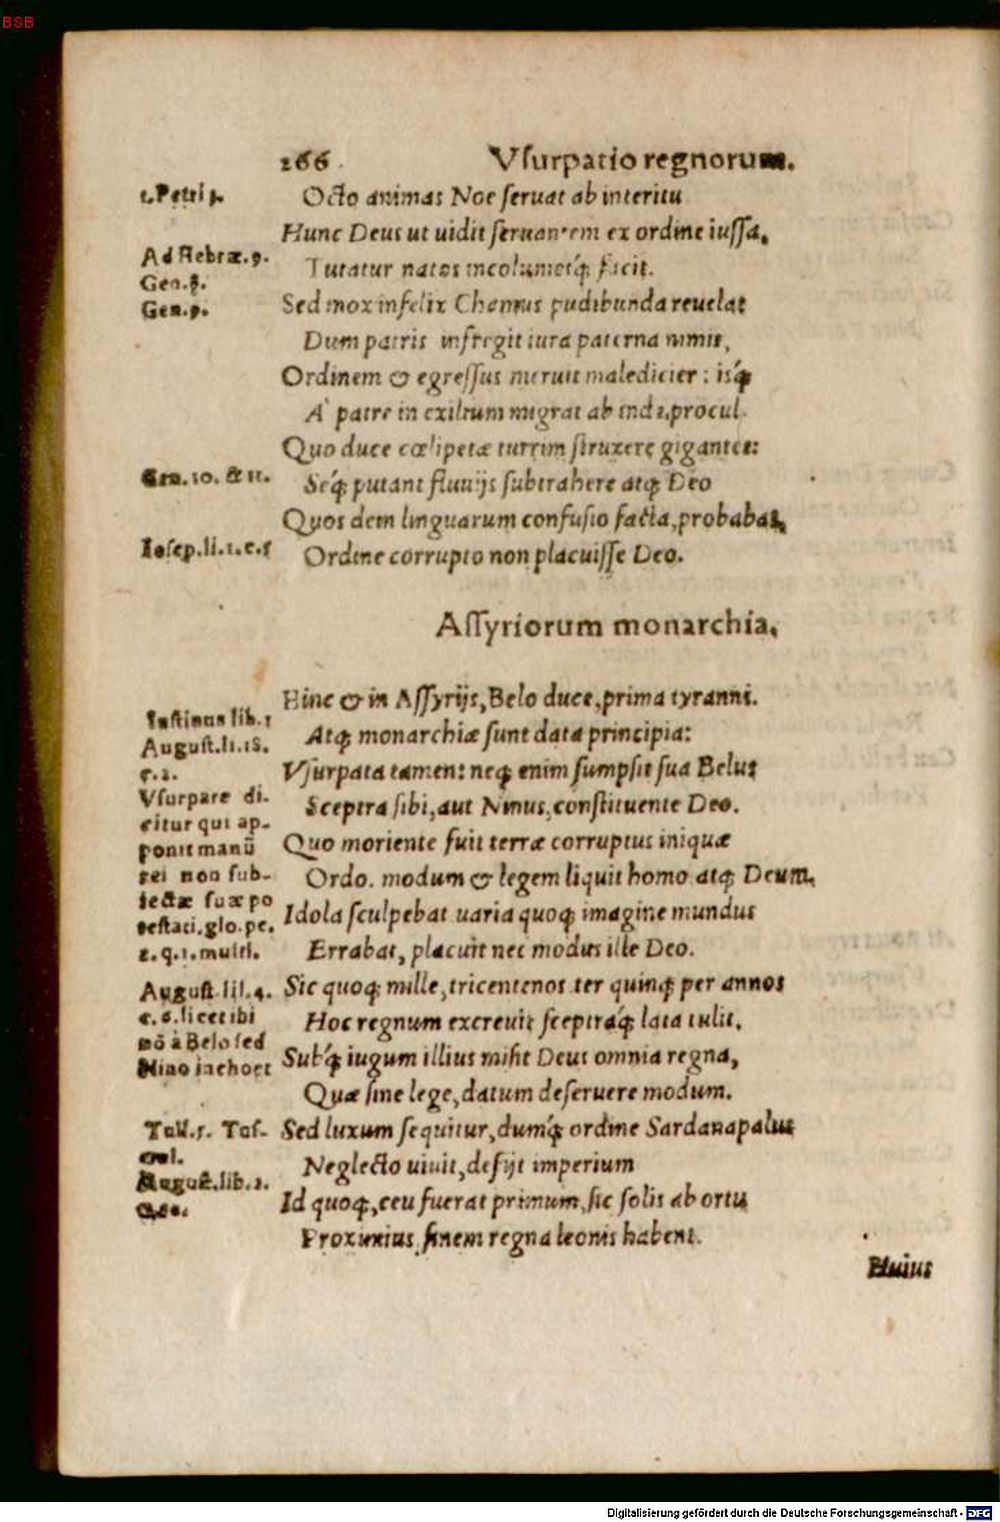 BSB
166 Vſurpatio regnorum.
1. Petri 3.
Octo animas Noe ſeruat ab interitu
Hunc Deus ut uidit ſeruantem ex ordine iuſſa,
Ad Hebræ. 9.
Tutatur natos incolumeśq; facit.
Gen. 8.
Gen. 9.
Sed mox infelix Chamus pudibunda reuelat
Dum patris infregit iura paterna nimis,
Ordinem & egreſſus meruit maledicier: isq́;
A' patre in exilium migrat ab inde, procul.
Quo duce cœlipetæ turrim ſtruxere gigantes:
Gen. 10. & 11.
Seq́; putant fluuijs ſubtrahere atq; Deo
Quos dem linguarum confuſio facta, probabat,
Ioſep. li. 1. c. 5
Ordine corrupto non placuiſſe Deo.
Aſſyriorum monarchia.
Hinc & in Aſſyrijs, Belo duce, prima tyranni.
Iuſtinus lib. 1
Atq; monarchiæ ſunt data principia:
Auguſt. li. 18.
c. 2.
Vſurpata tamen: neq; enim ſumpſit ſua Belus
Vſurpare di-
Sceptra ſibi, aut Ninus, conſtituente Deo.
citur qui ap-
ponit manū
Quo moriente fuit terræ corruptus iniquæ
rei non ſub-
Ordo. modum & legem liquit homo atq; Deum,
iectæ ſuæ po
Idola ſculpebat uaria quoq; imagine mundus
teſtati. glo. pe.
2. q. 1. multi.
Errabat, placuit nec modus ille Deo.
Auguſt. lil. 4.
Sic quoq; mille, tricentenos ter quinq; per annos
c. 6. licet ibi
Hoc regnum excreuit ſceptraq́; lata tulit,
nō à Belo ſed
Nino inchoet
Subq́; iugum illius miſit Deus omnia regna,
Quæ ſine lege, datum deſeruere modum.
Tuſ. 5. Tuſ-
Sed luxum ſequitur, dumq́; ordine Sardanapalus
cul.
Neglecto uiuit, deſijt imperium
Auguſt. lib. 2.
Id quoq;, ceu fuerat primum, ſic ſolis ab ortu
Proximius finem regna leonis habent.
Huius
Digitalisierung gefördert durch die Deutsche Forschungsgemeinschaft - DFG